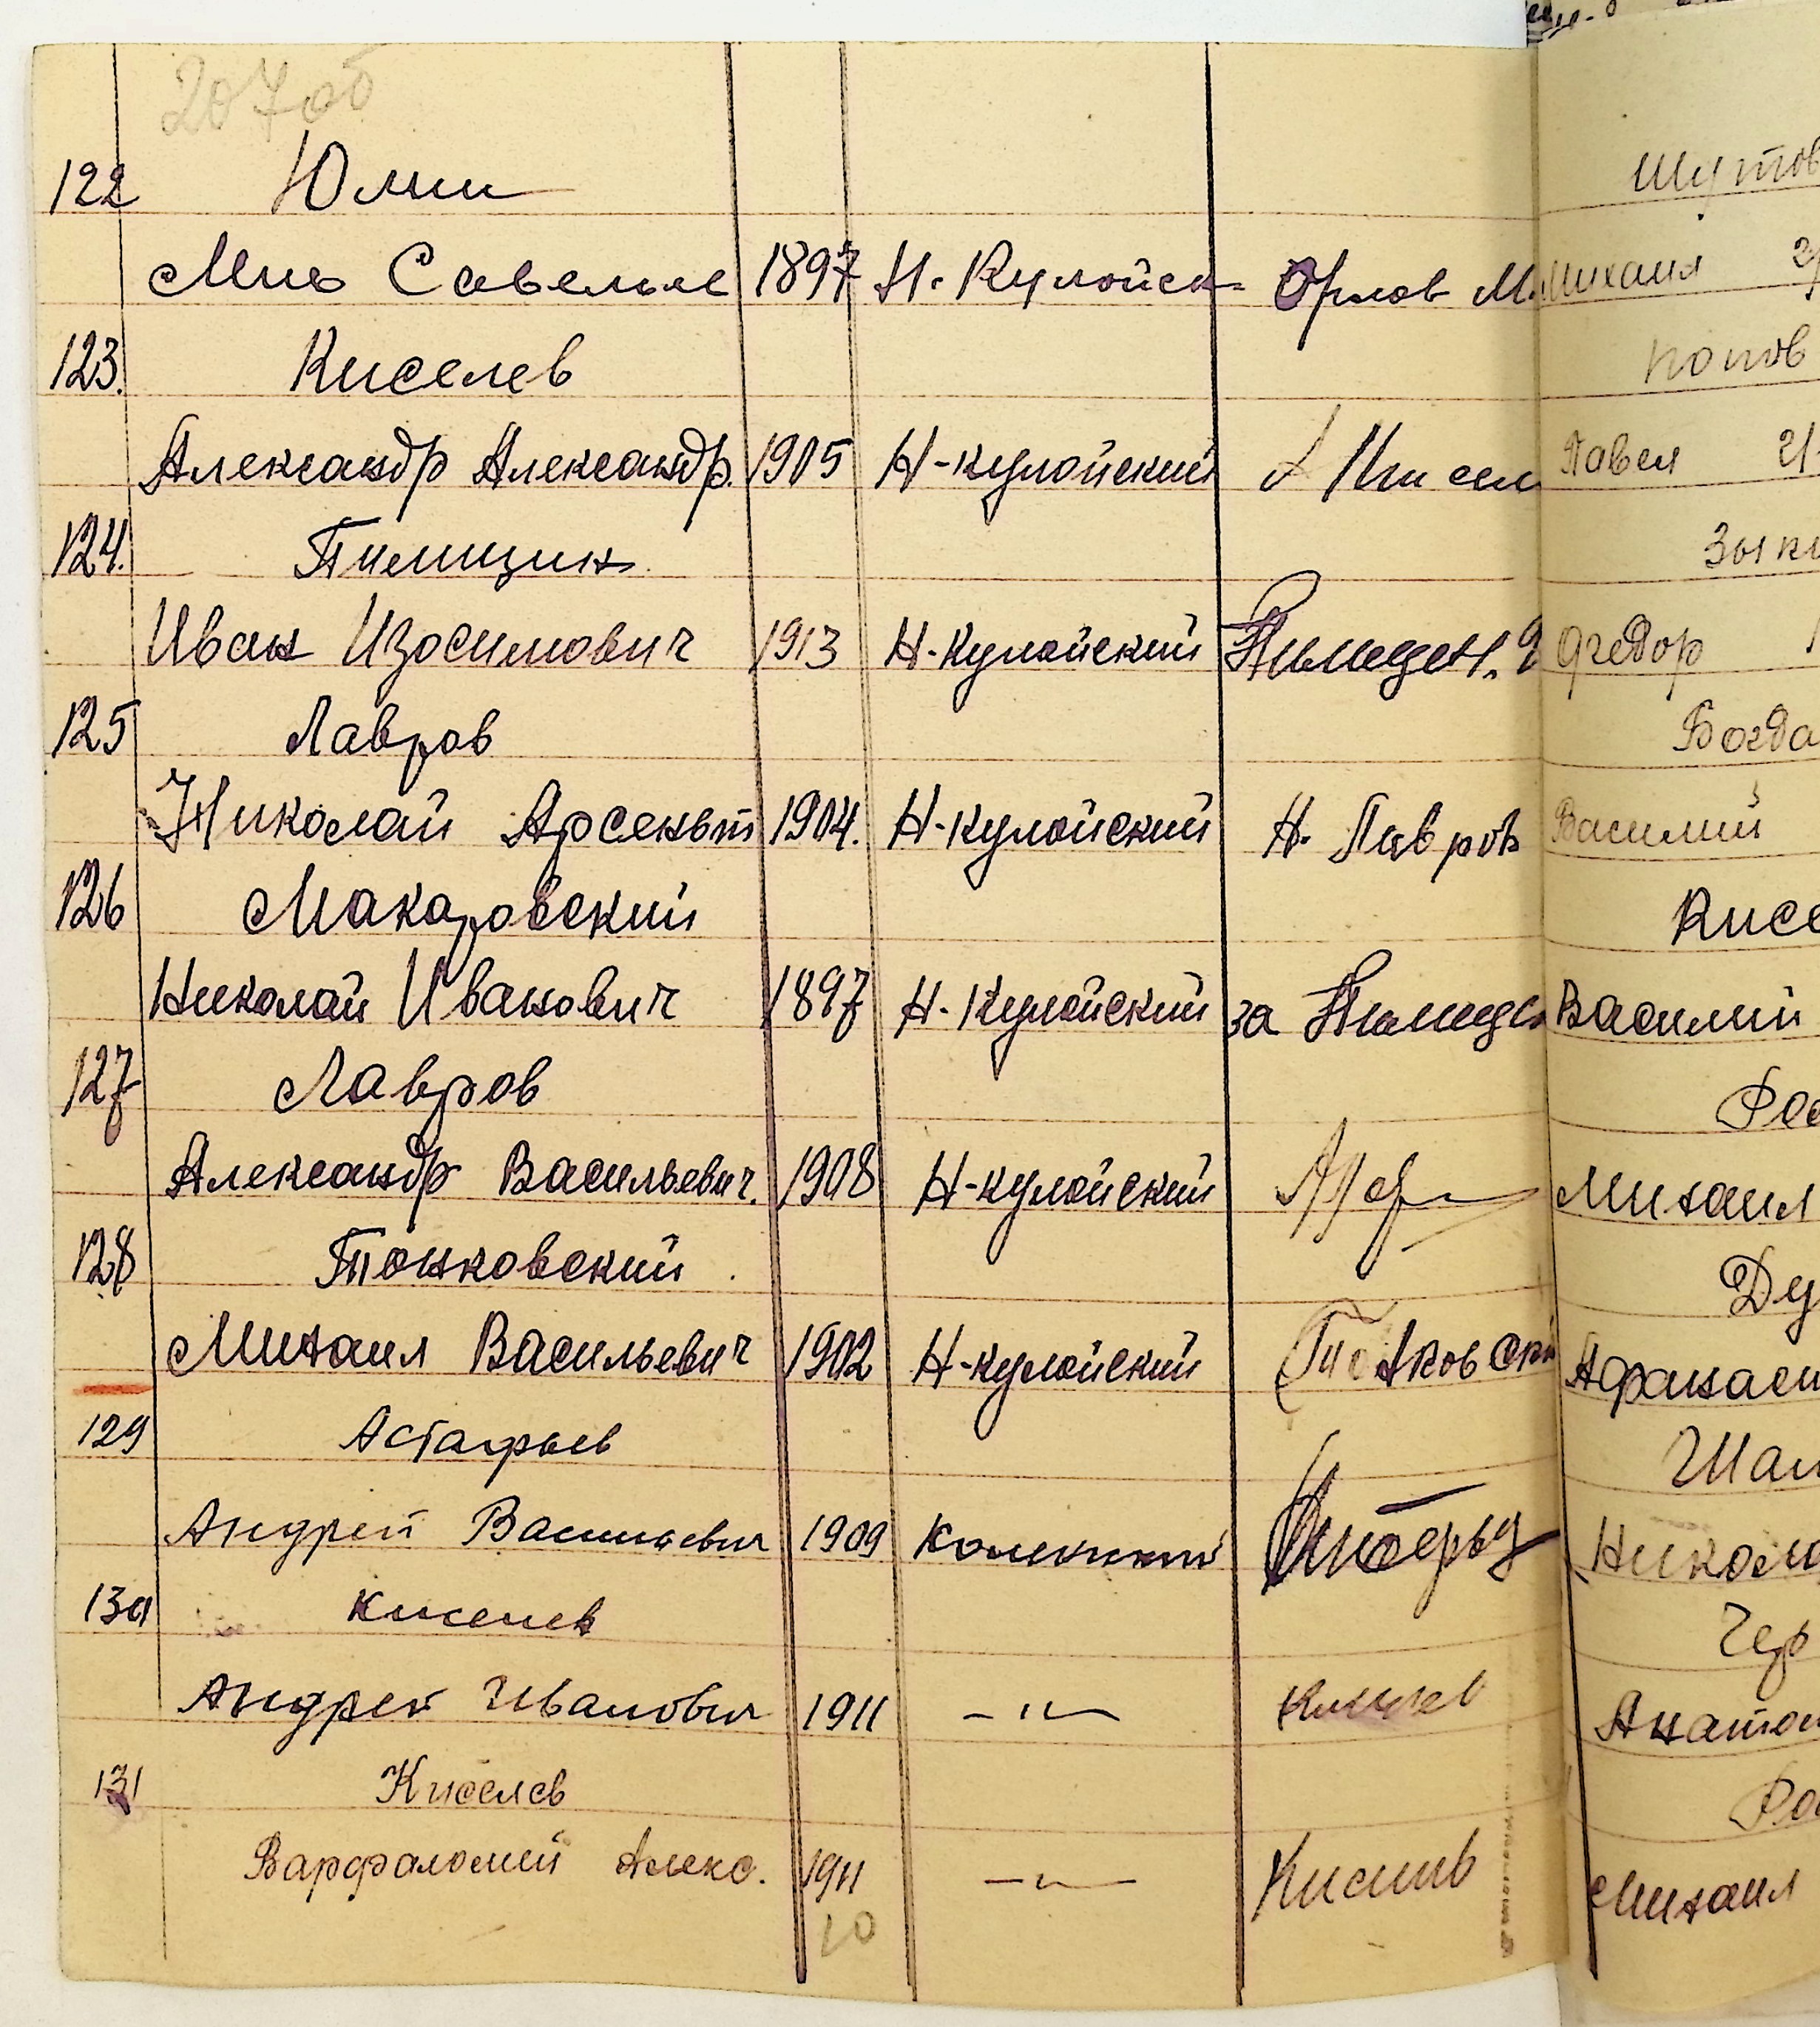 207об
122 Юлин
Мих Савельев 1897 Н. Кулойск Орлов М.
123. Киселев
Александр Александр. 1905 Н-кулойский А Кисел
124. Пилицин
Иван Изосимович 1913 Н-Кулойский
125 Лавров
Николай Арсеньт 1904. Н-кулойский Н. Лавров
126 Макаровский
Николай Иванович 1897 Н. Кулойский за
127 Лавров
Александр Васильевич. 1908 Н-кулойский
128 Тонковский
Михаил Васильевич 1902 Н-кулойский Тонковский
129 Астафьев
Андрей Васильевич 1909
130 Киселев
Андрей Иванович 1911 -"- Киселев
131 Киселев
Варфаломей Алекс. 1911 -"- Киселев
10
Шутов
Михаил
Попов
Павел
Зыки
Федор
Богда
Василий
Кисе
Василий
Михаил
Ду
Афанаси
Шал
Никола
Чер
Анатол
Михаил